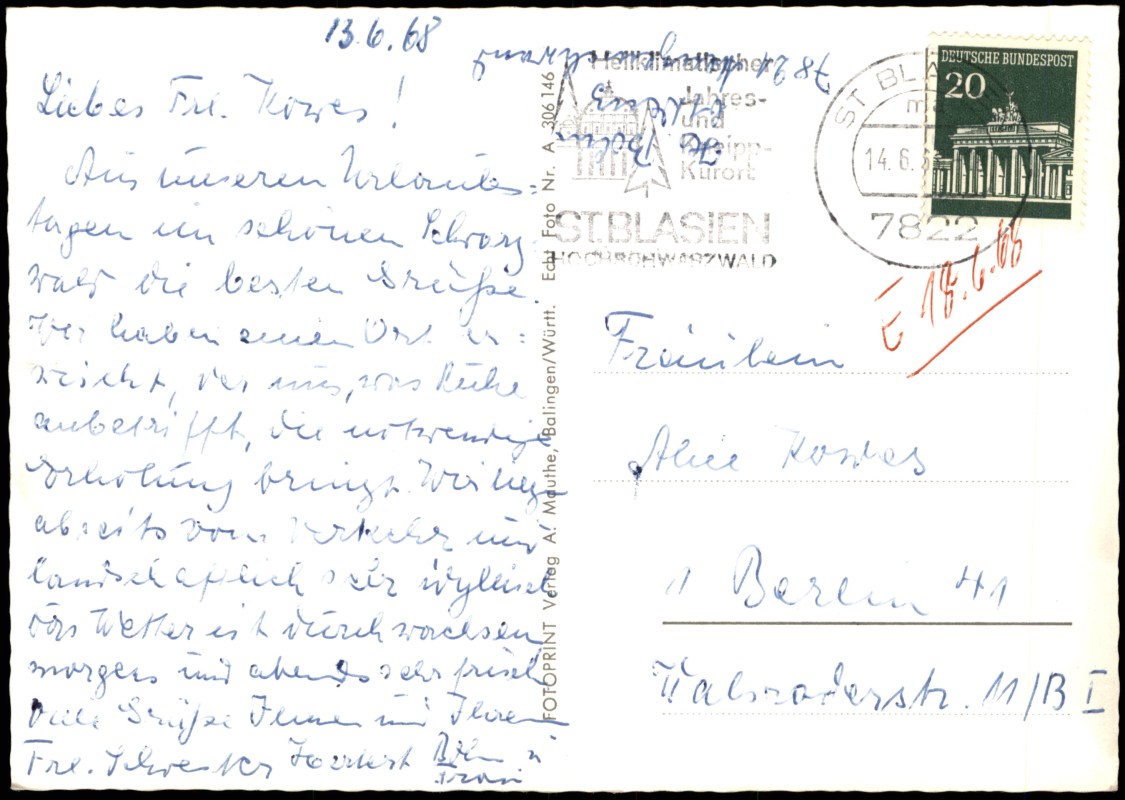 13.6.68
Liebes Frl. Kowes!
Aus unseren Urlaubs-
tagen im schönen Schwarz-
wald die besten Grüße.
Wir haben einen Ort er-
wischt, der uns, was Ruhe
anbetrifft, die notwendige
Erholung bringt. Wir liegen
abseits vom Verkehr und
landschaftlich sehr idyllisch
das Wetter ist durchwachsen
morgens und abends sehr frisch
Viele Grüße Ihnen und Ihrem
Frl. Schwester Herbert Böhm u
Frau
7821
Heilklimatischer
Jahres-
und
Kneipp-
Kurort
ST. BLASIEN
HOCHSCHWARZWALD
ST BLA
14.6.6
7822
DEUTSCHE BUNDESPOST
20
E 18.6.68
FOTOPRINT Verlag A. Mauthe, Balingen/Württ. Echt Foto Nr. A 306 146
Fräulein
Alice Kowes
1 Berlin 41
Walsroderstr. 11/B I